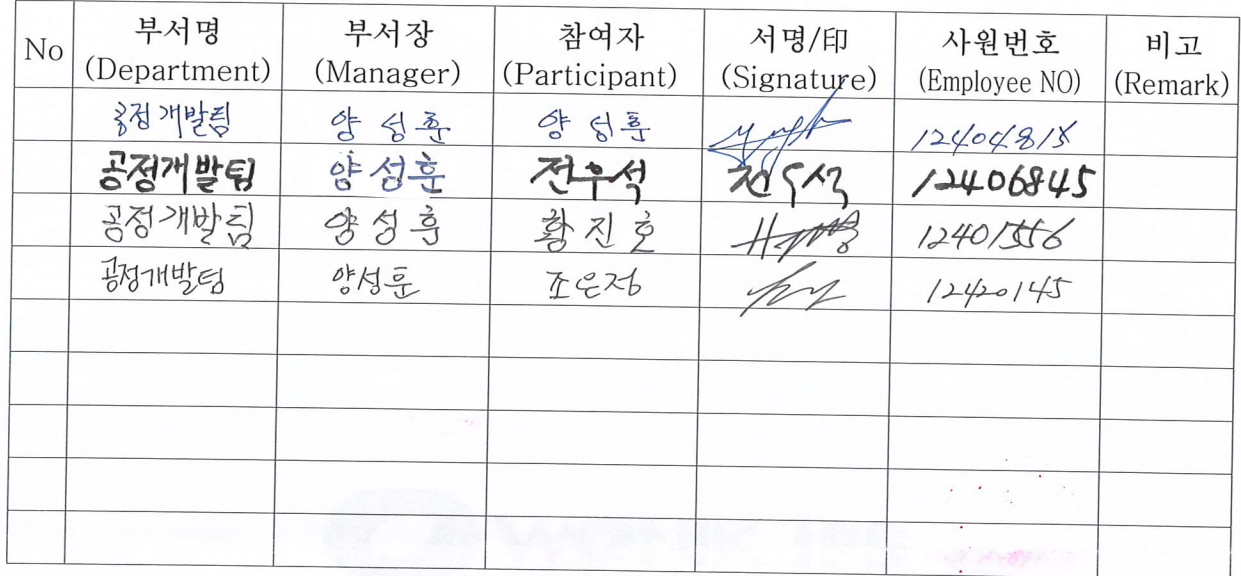 No 부서명 (Department) 부서장 (Manager) 참여자 (Participant) 서명/印 (Signature) 사원번호 (Employee NO) 비고 (Remark)
공정개발팀 양성훈 양성훈 12404815
공정개발팀 양성훈 전우석 전우석 12406845
공정개발팀 양성훈 황진호 12401556
공정개발팀 양성훈 조은정 12420145